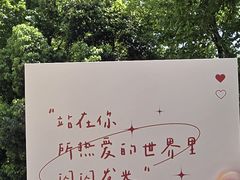 “站在你
所热爱的世界里
闪闪发光”